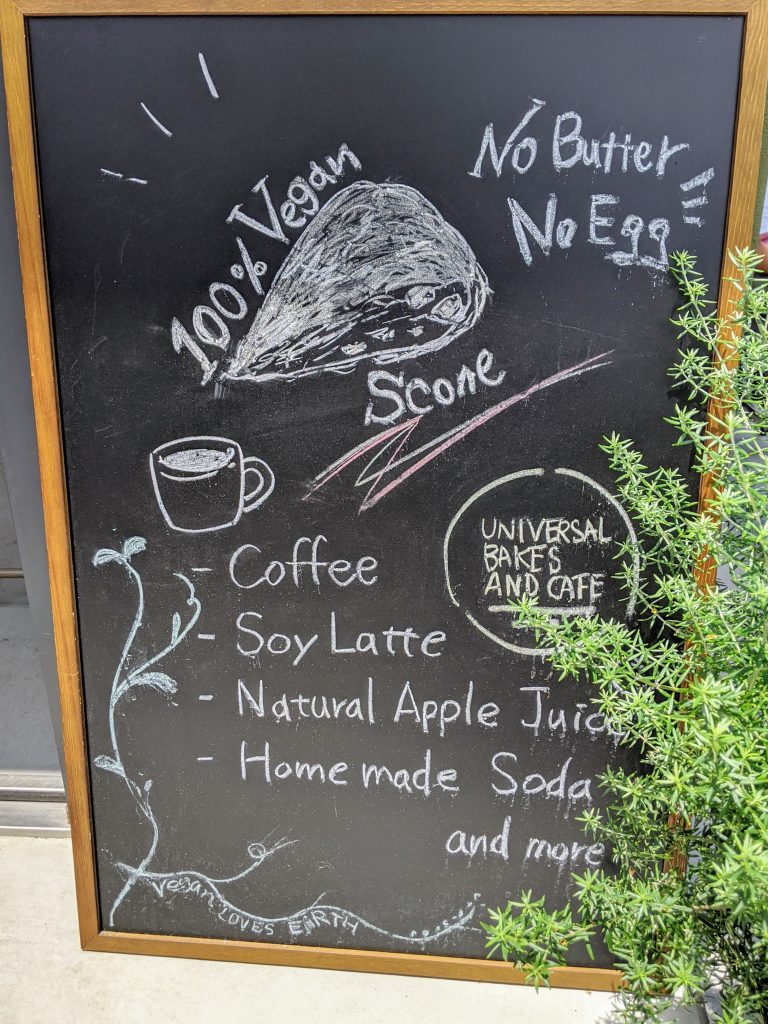 No Butter
No Egg
100% Vegan
Scone
UNIVERSAL
BAKES
AND CAFE
- Coffee
- Soy Latte
- Natural Apple Juice
- Home made Soda
and more
Vegan LOVES EARTH